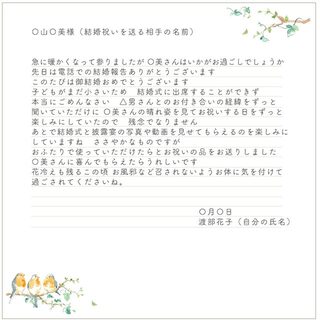 〇山〇美様（結婚祝いを送る相手の名前）
急に暖かくなって参りましたが 〇美さんはいかがお過ごしでしょうか
先日は電話での結婚報告ありがとうございます
このたびは御結婚おめでとうございます
子どもがまだ小さいため 結婚式に出席することができず
本当にごめんなさい △男さんとのお付き合いの経緯をずっと
聞いていただけに 〇美さんの晴れ姿を見てお祝いする日をずっと
楽しみにしていたので 残念でなりません
あとで結婚式と披露宴の写真や動画を見せてもらえるのを楽しみに
していますね ささやかなものですが
おふたりで使っていただけたらとお祝いの品をお送りしました
〇美さんに喜んでもらえたらうれしいです
花冷えも残るこの頃 お風邪など召されないようお体に気を付けて
過ごされてくださいね。
〇月〇日
渡部花子（自分の氏名）